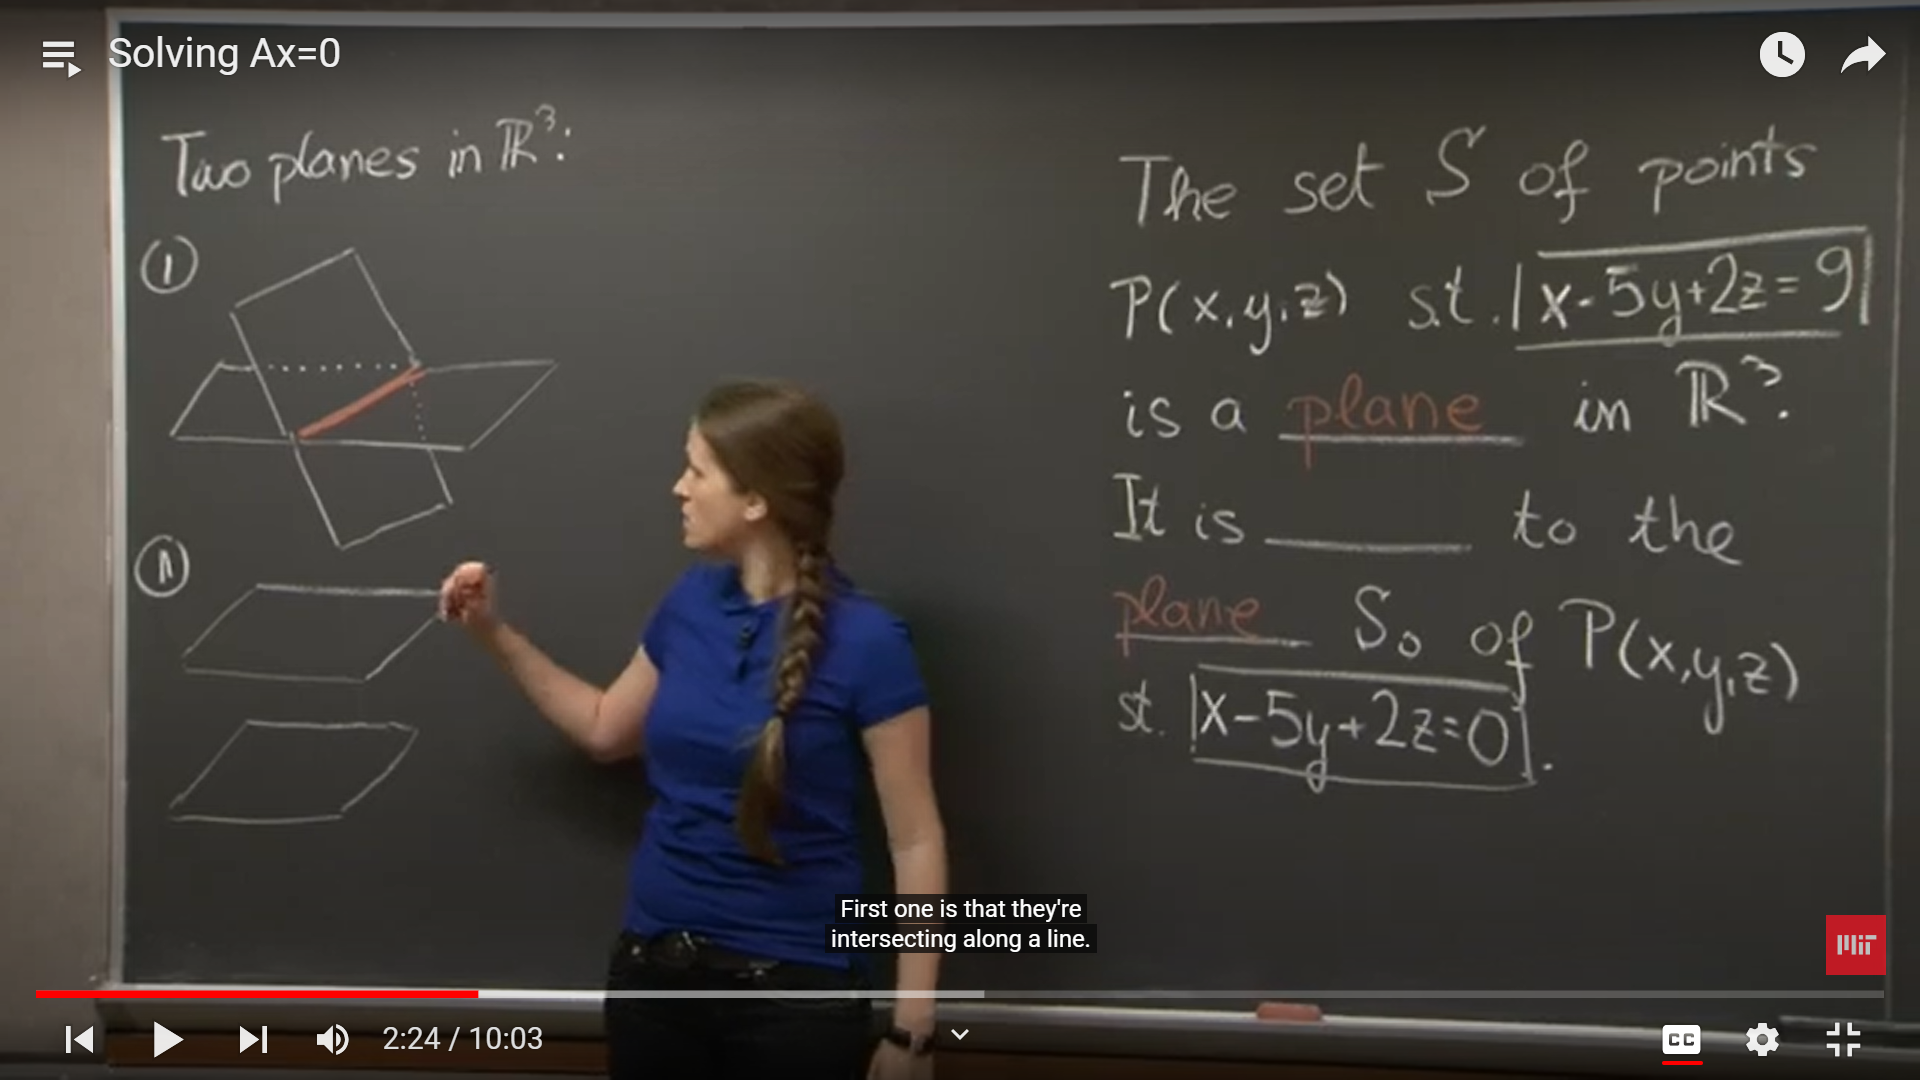 Solving Ax=0
Two planes in ℝ³:
①
②
The set S of points
P(x,y,z) s.t. x-5y+2z=9
is a plane in ℝ³.
It is ______ to the
plane S₀ of P(x,y,z)
st. x-5y+2z=0.
First one is that they're
intersecting along a line.
MIT
2:24 / 10:03
CC